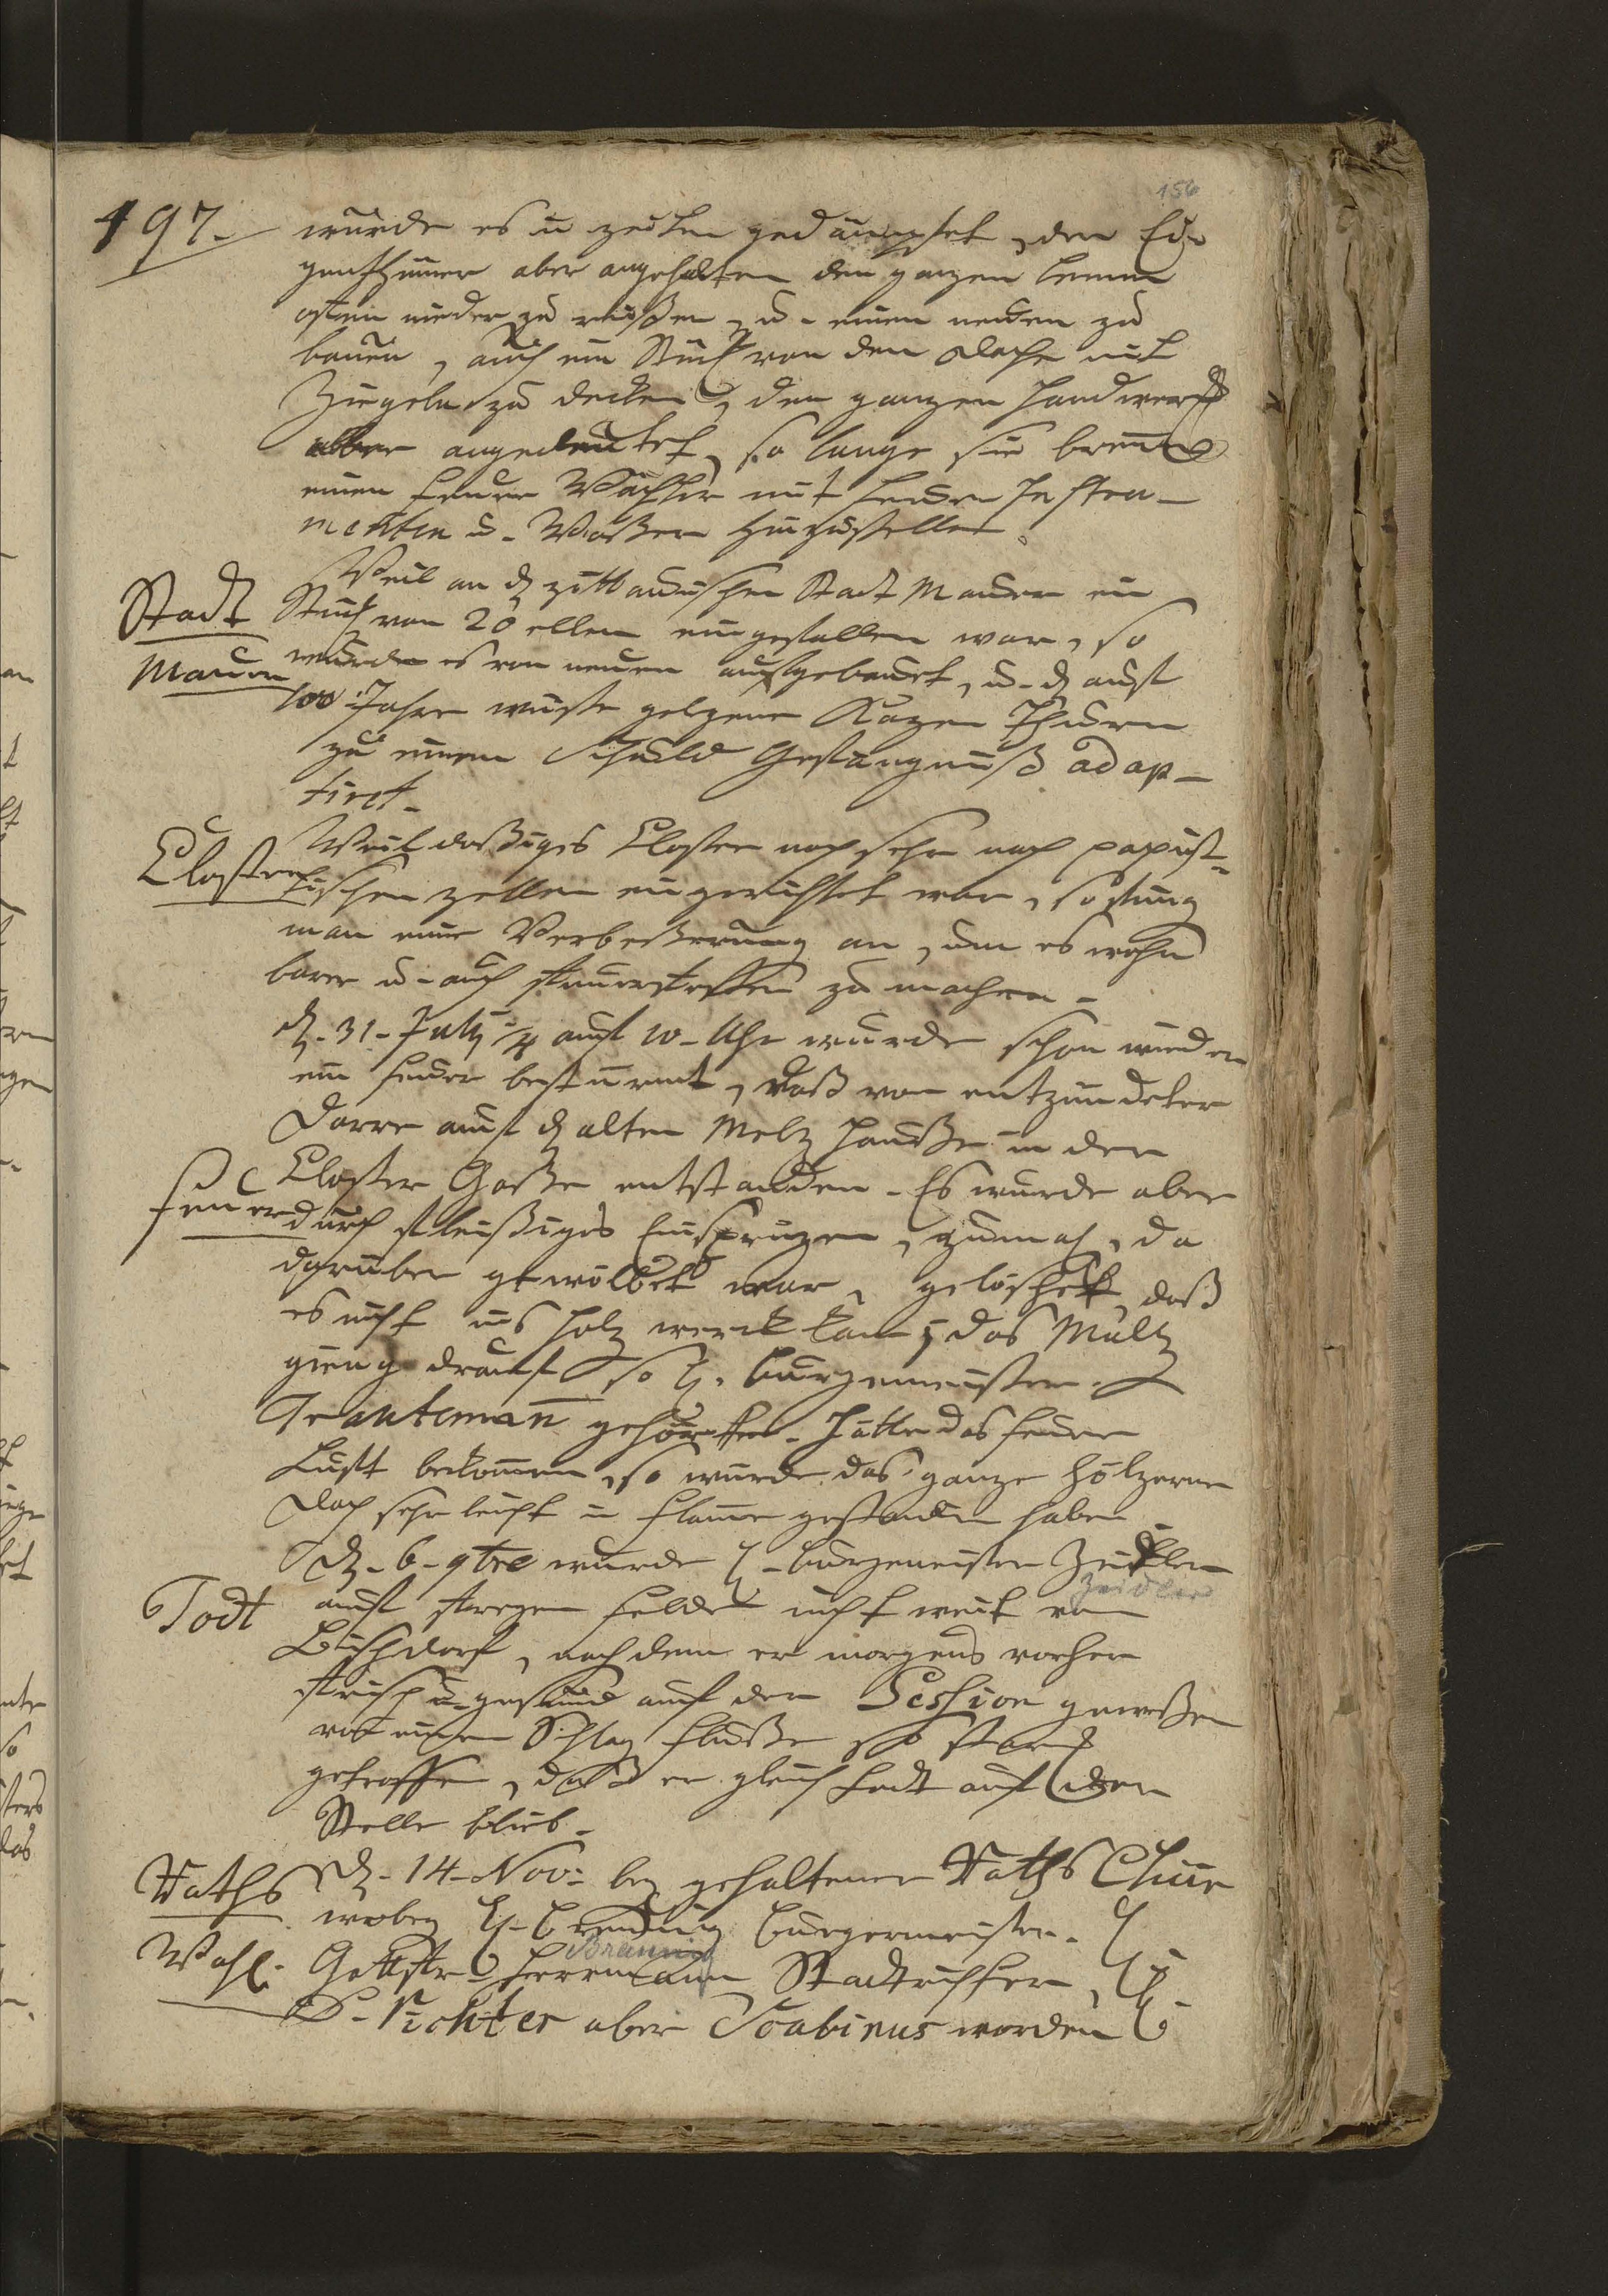 156
197.
wurde es in zeiten gedämpfet, der Ei-
genthümer aber angehalten den ganzen brenn
ofen nieder zu reißen, u. einen neuen zu
bauen, auch ein Stück von den Dache mit
Ziegeln zu decken, den ganzen Handwerk
aber angedeutet, so lange sie brenn
einen Feuer Wächter mit Feuer Instru-
menten u. Waßer hinzustellen.
Stadt
Mauer
Weil an d zittauischen Stadt Mauer ein
Stück von 20 ellen eingefallen war, so
wurde es von neuen aufgebauet, u. d auf
100 Jahr wüste gelegene Kazen Thurm
zu einem Schuld Gefängniß adap-
tiret.
Closter
Weil daßiges Closter noch sehr nach papist-
ischen zellen eingerichtet war, so fieng
man eine Verbeßerung an, um es wohn
barer u. auch feuerfester zu machen.
d. 31. July auf 10. Uhr wurde schon wieder
ein Feuer bestürmt, daß von entzündeter
Feuer
Darre auf d alten Meltz Hauße in der
Closter Gaße entstanden. Es wurde aber
durch fleißiges Einsprizen, zumal, da
darüber gewölbet war, gelöschet, daß
es nicht ins Holz werck kam, das Maltz
gieng drauf so H. Burgemeister
Trauteman gehörte. Hätte das Feuer
Lufft bekommen, so würde das ganze hölzerne
Dach sehr leicht in Flamme gestanden haben
Todt
d. 6. 9bre wurde H. Burgemeister Zeidler
Zeidler
auf freyen Felde nicht weit von
Bischdorf, nach dem er morgens vorher
frisch u. gesund auf der Session geweßen
von einem Schlag Fluße so starck
getroffen, daß er gleich todt auf der
Stelle blieb.
Raths
Wahl.
d. 14. Nov: bey gehaltener Raths Chur
wobey H. Breunig Burgermeister. H
Breunig
Gottfr. Herrmann Stadtrichter, H
D. Richter aber Scabinus worden